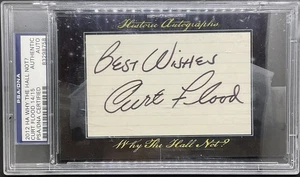 Historic Autographs
Best Wishes
Curt Flood
Why The Hall Not?
2012 HA WHY THE HALL NOT?
CURT FLOOD 14/15
PSA/DNA CERTIFIED
AUTHENTIC
AUTO
83298758
PSA/DNA